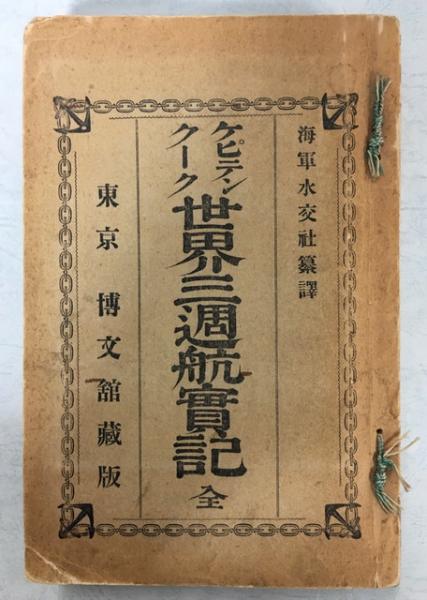 海軍水交社纂譯
ケピテン
クーク
世界三週航實記 全
東京 博文舘藏版